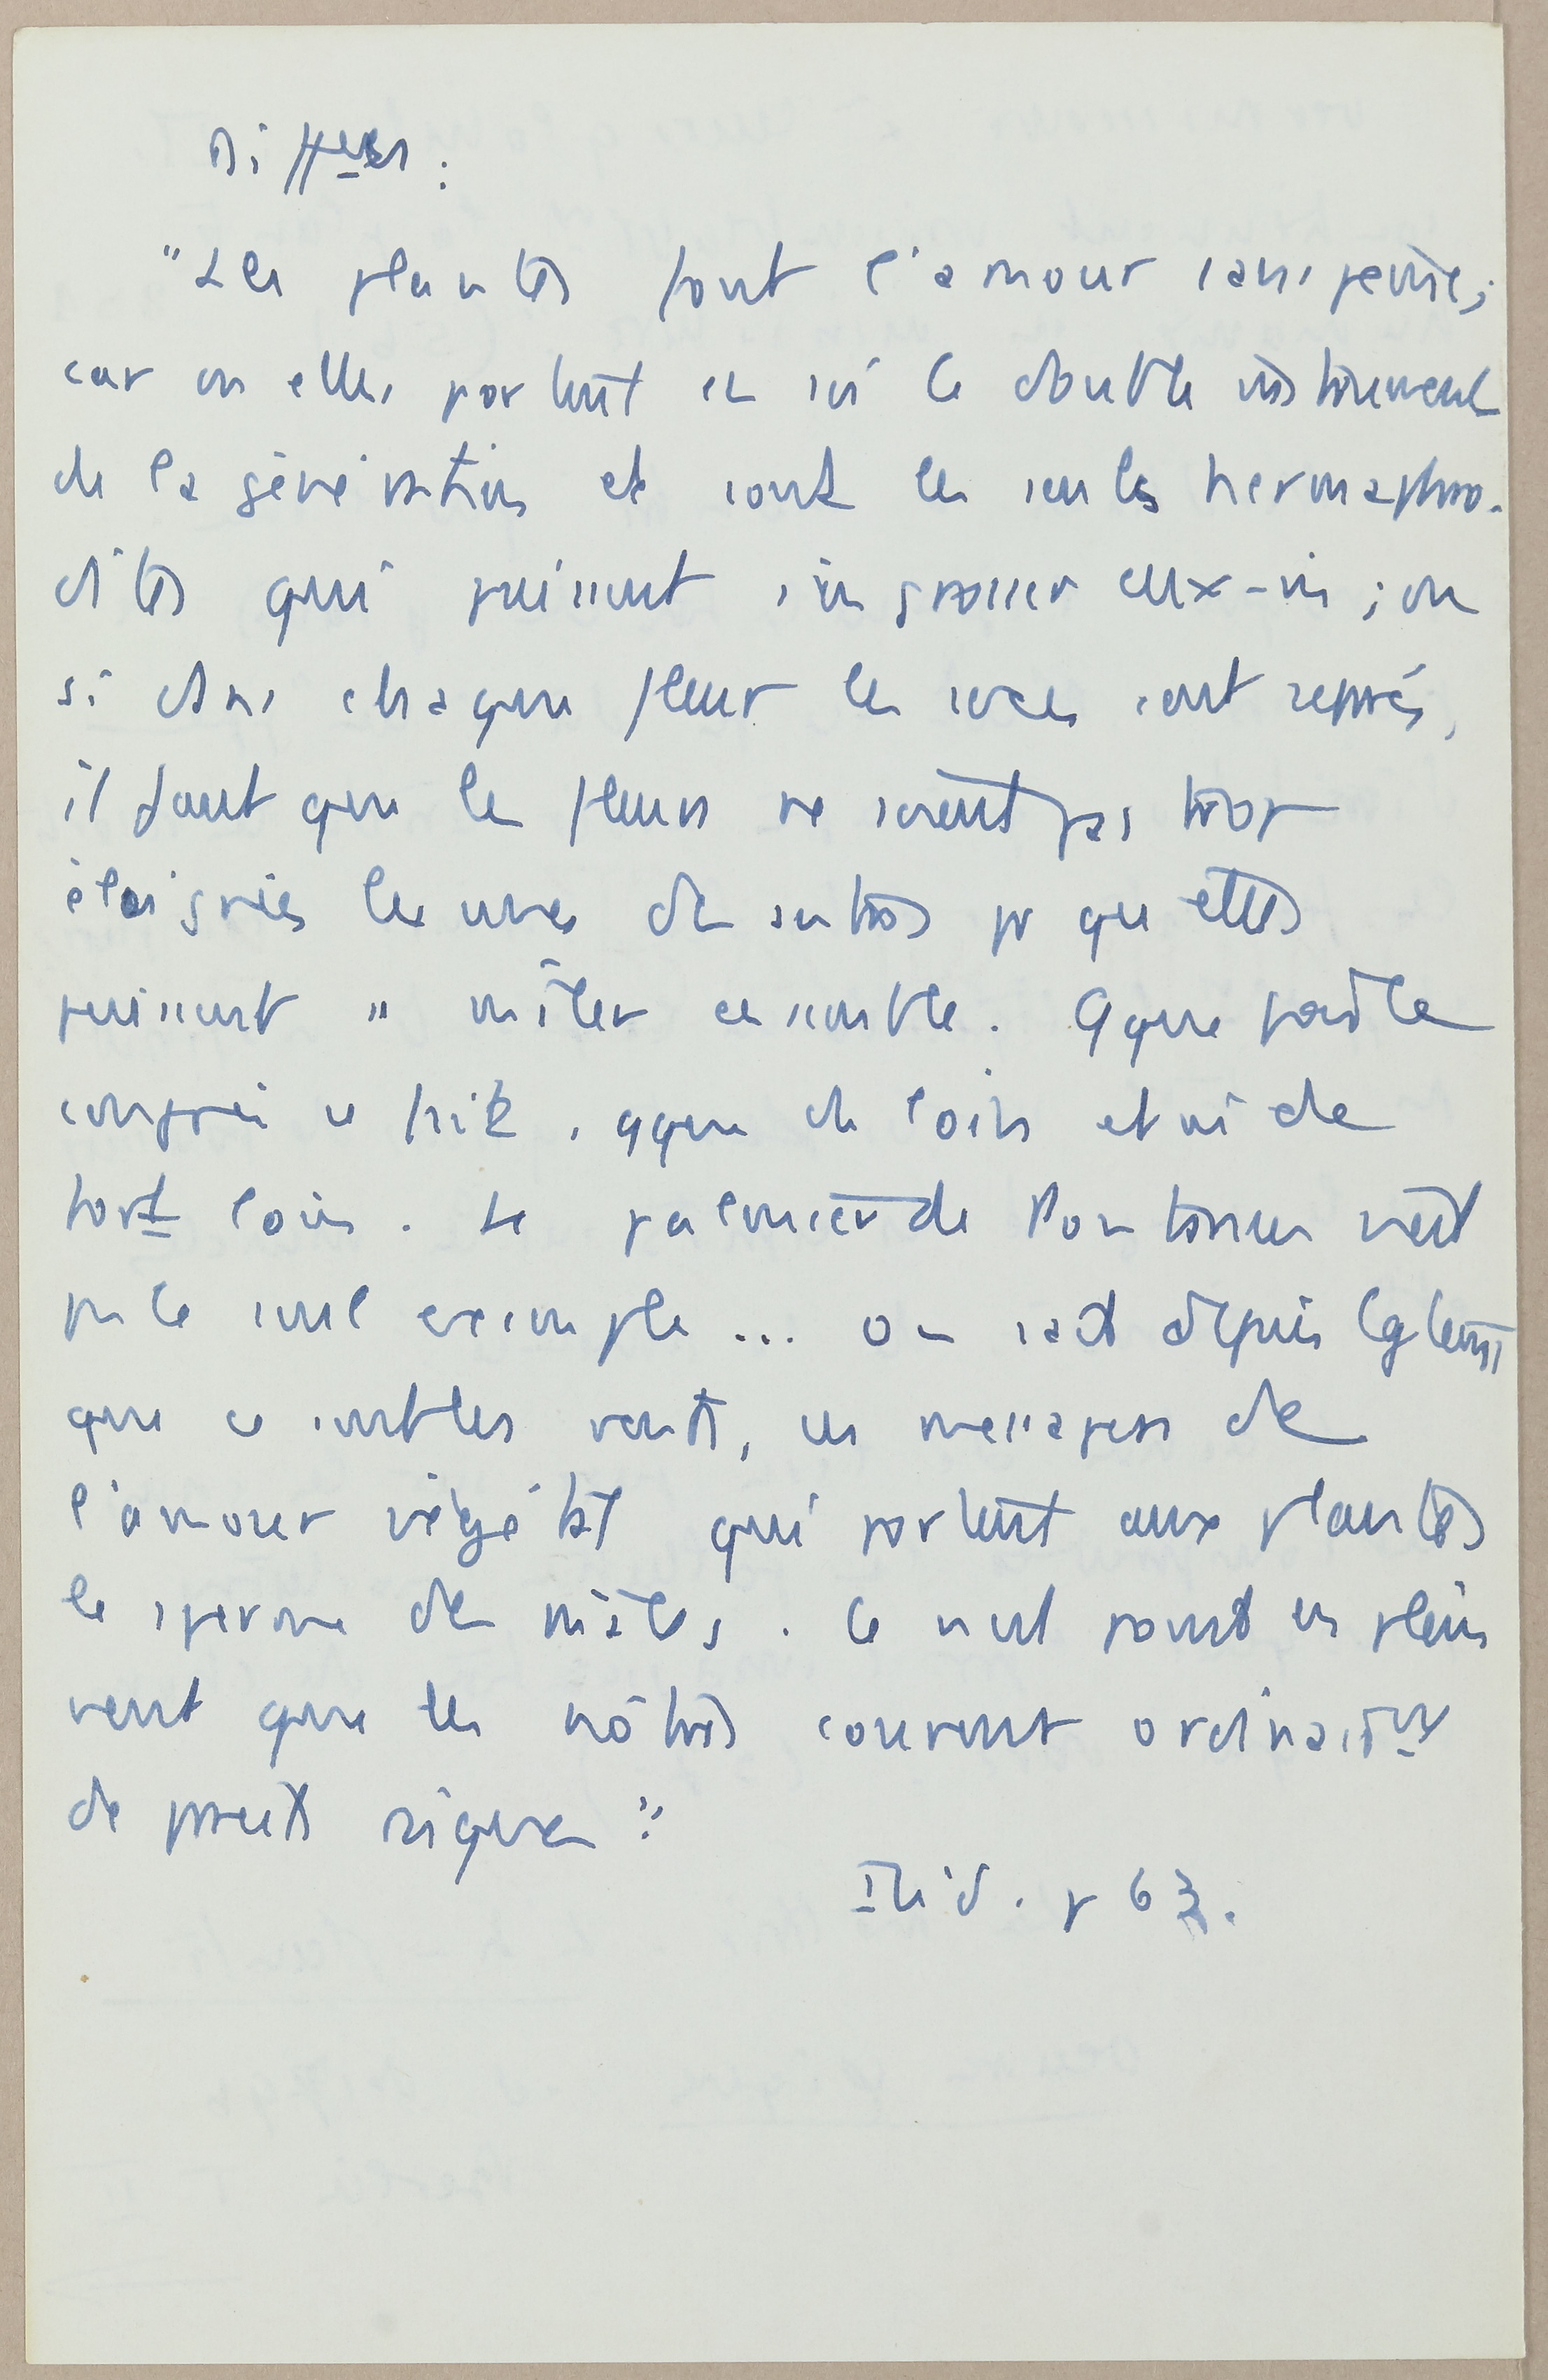 Différences :
"Les plantes font l'amour sans peine;
car ou elles portent en soi le double instrument
de la génération et sont les seuls hermaphro-
dites qui puissent s'engrosser eux-m ; ou
si dans chaque fleur les sexes sont séparés,
il faut que les fleurs ne soient pas trop
éloignées les unes des autres pr qu'elles
puissent se mêler ensemble.
de loin et m de
fort loin. Le palmier de Pontanus n'est
pas le seul exemple ... On sait depuis lgtemps
que ce sont les vents, ces messagers de
l'amour végétal qui portent aux plantes
le sperme des mâles. Ce n'est point en plein
vent que les nôtres courent ordinairt
de pareils risques"
Ibid. p 63.